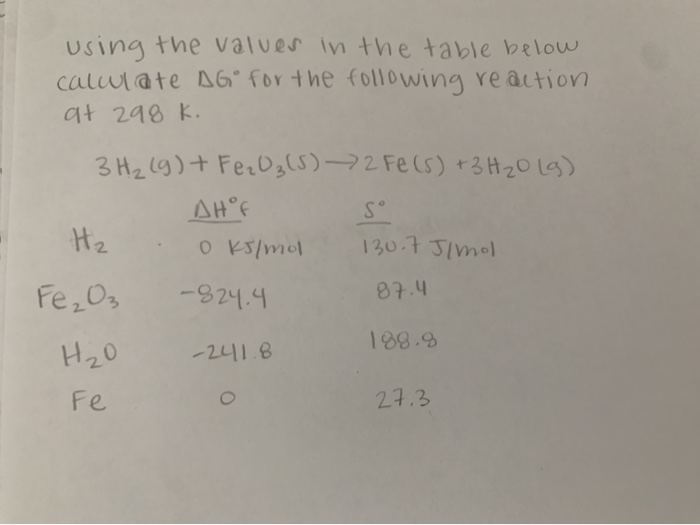 using the values in the table below
calculate ΔG° for the following reaction
at 298 K.
3 H₂ (g) + Fe₂O₃ (s) → 2 Fe(s) + 3 H₂O (g)
ΔH°f S°
H₂ 0 KJ/mol 130.7 J/mol
Fe₂O₃ -824.4 87.4
H₂O -241.8 188.8
Fe 0 27.3